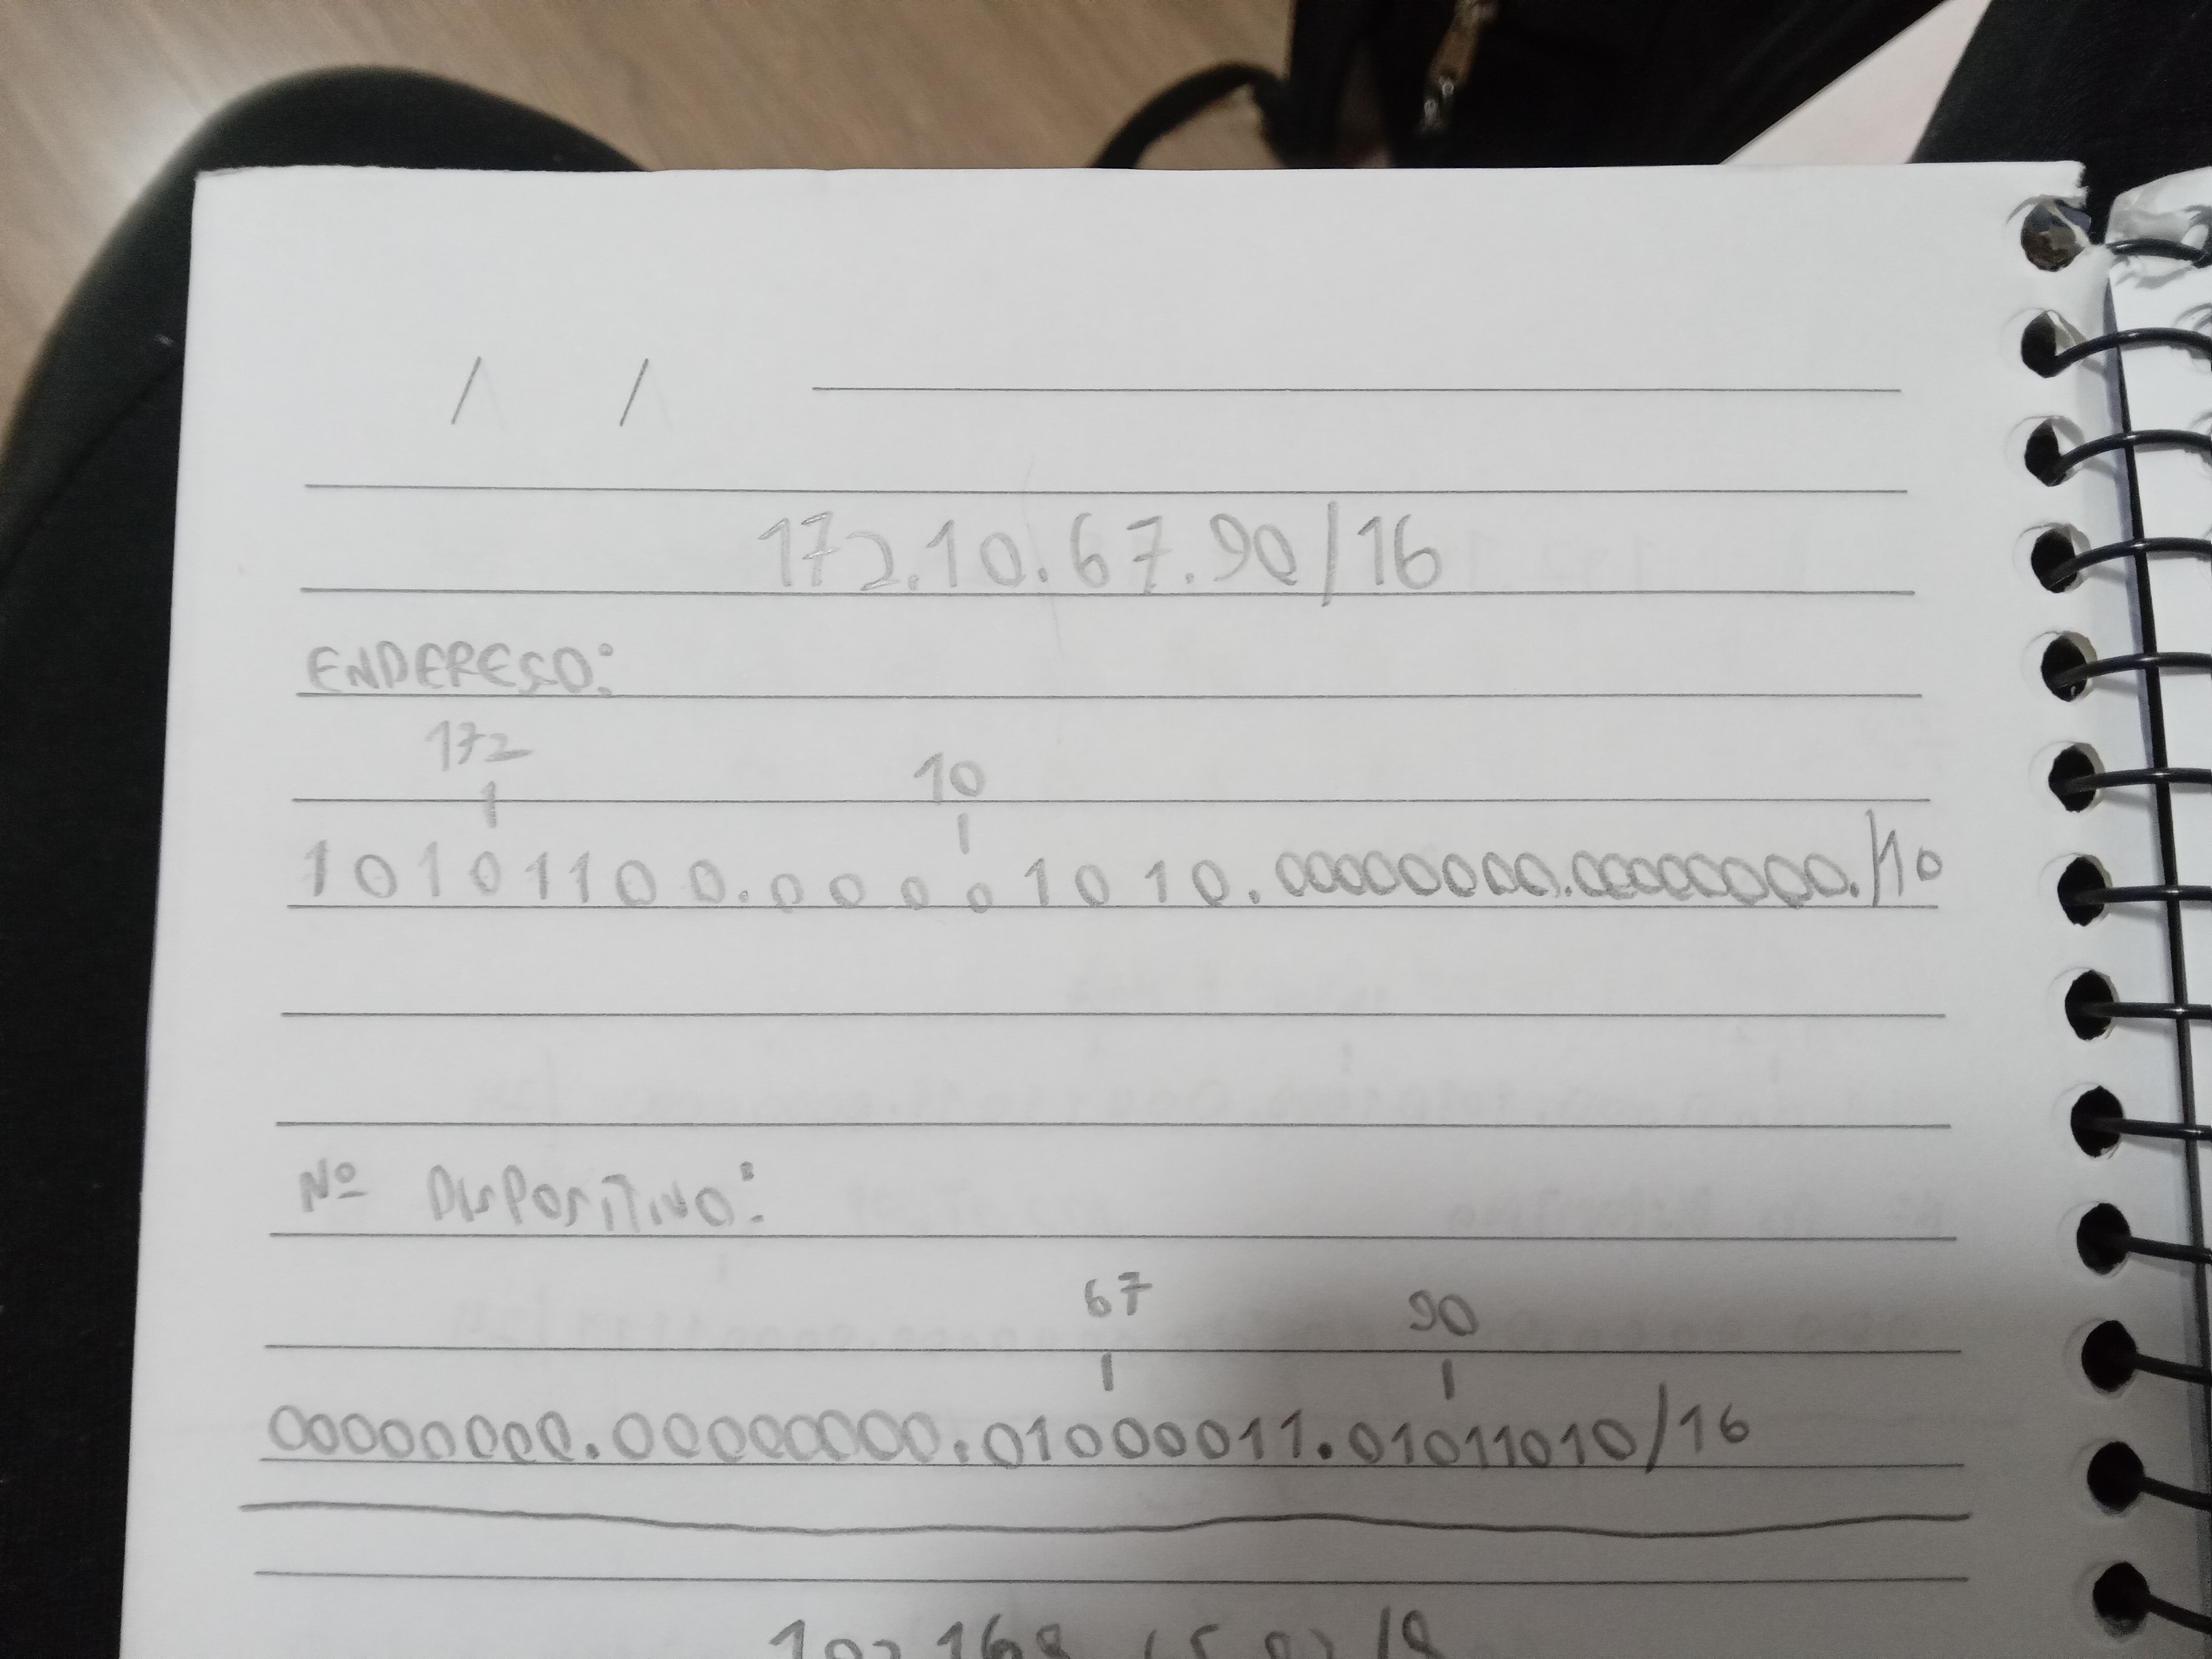 / /
172.10.67.90/16
ENDEREÇO:
172 10
10101100.00001010.00000000.00000000./10
Nº DISPOSITIVO:
67 90
00000000.00000000.01000011.01011010/16